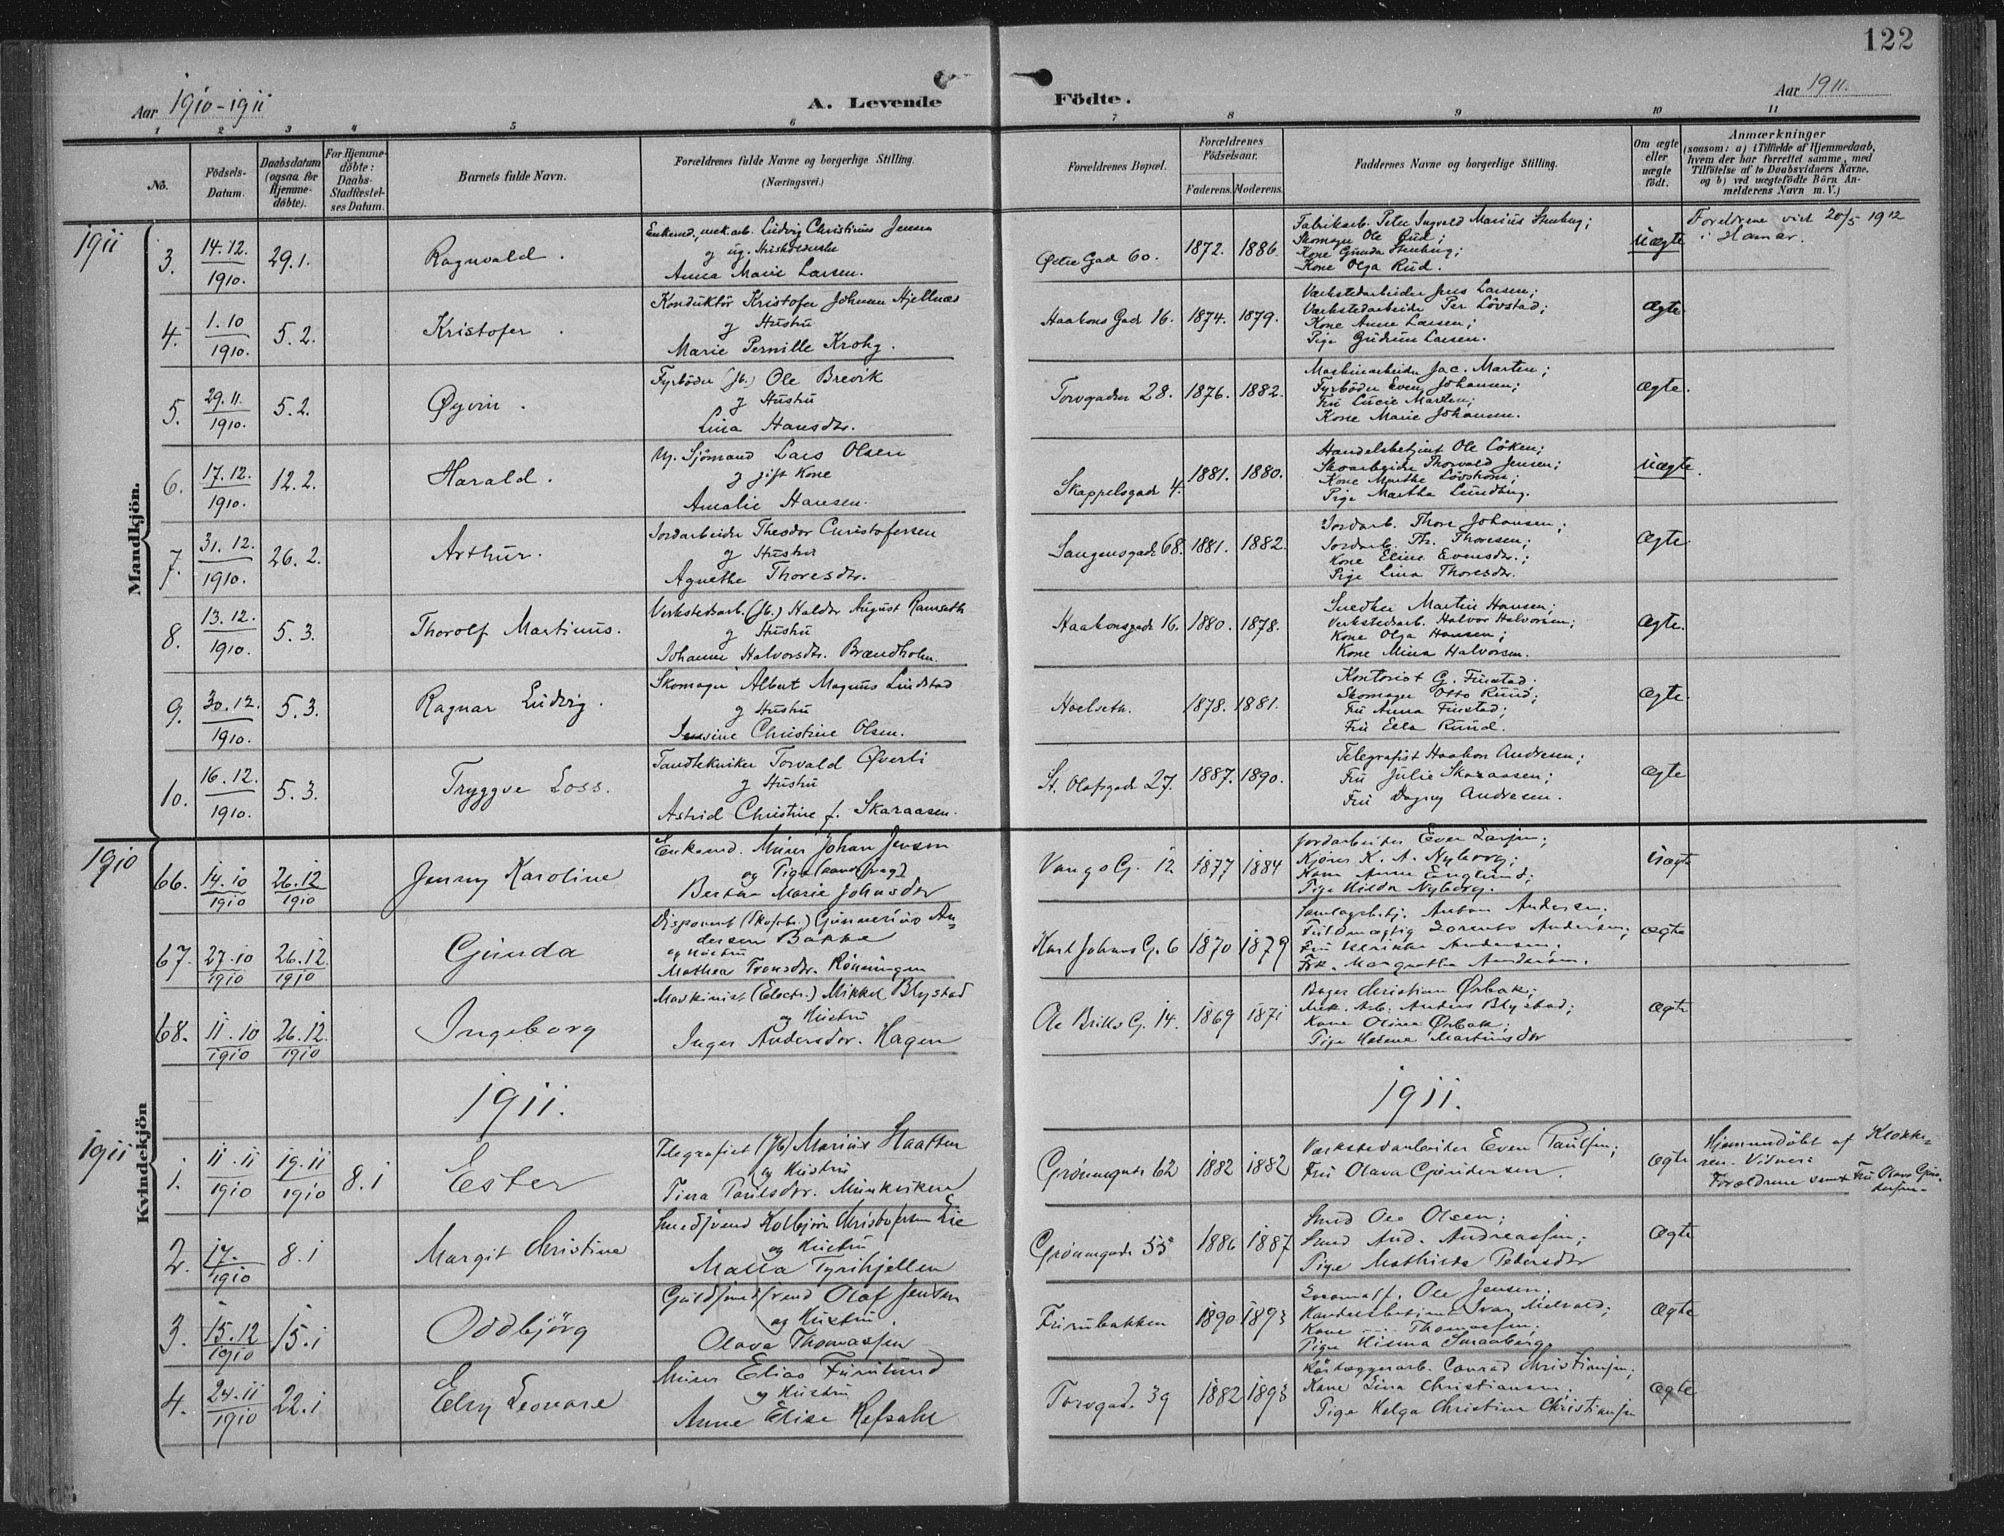 122
Aar 1910-1911
A. Levende
Födte.
Aar 1911.
1 2 3 4 5 6 7 8 9 10 11
No.
Födsels-
Datum.
Daabsdatum
(ogsaa for
Hjemme-
döbte).
For Hjemme-
döbte:
Daabs-
Stadfæstel-
ses Datum.
Barnets fulde Navn.
Forældrenes fulde Navne og borgerlige Stilling.
(Næringsvei.)
Forældrenes Bopæl.
Forældrenes
Födselsaar.
Faderens. Moderens.
Faddernes Navne og borgerlige Stilling.
Om ægte
eller
uægte
födt.
Anmærkninger
(saasom: a) i Tilfælde af Hjemmedaab,
hvem der har forrettet samme, med
Tilföielse af to Daabsvidners Navne,
og b) ved uægtefödte Börn An-
melderens Navn m. V.)
1911
Mandkjön.
3. 14.12. 1910. 29.1.
Ragnvald.
Enkemd, mek.arb. Ludvig Christinus Jensen
og ug.
Anna Marie Larsen.
Østre Gad 60. 1872. 1886.
Fabrikarb. Peter Ingvald Marius Stenberg;
Skomager Ole Rud;
Kone Gunda Stenberg;
Kone Olga Rud.
Uægte
Foreldrene viet 20/5 1912
i Hamar.
4. 1.10 1910. 5.2.
Kristofer.
Konduktör Kristofer Johan Hjellnæs
og Hustru
Marie Pernille Krohg.
Haakons Gad 16. 1874. 1879.
Værkstedarbeider Jens Larsen;
Værkstedarbeide Per Lövstad;
Kone Anne Larsen;
Pige Gudrun Larsen.
Ægte
5. 29.11. 1910. 5.2.
Øyvin.
Fyrböder (Jb.) Ole Brevik
og Hustru
Lina Hansdtr.
Torvgaden 28. 1876. 1882.
Maskinarbeider Jac. Marten;
Fyrböder Even Johansen;
Fru Lucie Marten;
Kone Marie Johansen.
Ægte.
6. 17.12. 1910. 12.2.
Harald.
Ug. Sjömand Lars Olsen
og gift Kone
Amalie Hansen.
Skappelsgade 4. 1881. 1880.
Handelsbetjent Ole Löken;
Skoarbeider Thorvald Jensen;
Kone Marthe Lövstrøm;
Pige Martha Lundberg.
Uægte.
7. 31.12. 1910. 26.2.
Arthur.
Jordarbeider Theodor Christofersen
og Hustru
Agnethe Thoresdtr.
Sangensgade 68. 1881. 1882.
Jordarb. Thore Johansen;
Jordarb. Th. Thoresen;
Kone Eline Evensdtr.;
Pige Lina Thoresdtr.
Ægte
8. 13.12. 1910. 5.3.
Thorolf Martinus.
Verkstedsarb. (Jb.) Haldor August Ramseth
og Hustru
Johanne Halvorsdtr. Brændholm.
Haakonsgade 16. 1880. 1878.
Snedker Martin Hansen;
Verkstedarb. Halvor Halvorsen;
Kone Olga Hansen;
Kone Mina Halvorsen.
Ægte.
9. 30.12. 1910. 5.3.
Ragnar Ludvig.
Skomager Albert Magnus Lindstad
og Hustru
Christine Olsen.
Hoelseth. 1878. 1881.
Kontorist G. Finstad;
Skomager Otto Ruud;
Fru Anna Finstad;
Fru Ella Ruud.
Ægte
10. 16.12. 1910. 5.3.
Tryggve Loss.
Tandtekniker Torvald Øverli
og Hustru
Astrid Christine f. Skaraasen.
St. Olafsgade 27. 1887. 1890.
Telegrafist Haakon Andresen;
Fru Julie Skaraasen;
Fru Dagny Andresen.
Ægte
1910
Kvindekjön
66. 14.10 1910 26.12 1910
Jenny Karoline
Enkemd. Murer Johan Jensen
og Pige
Bertha Marie Johnsdtr
Vangs G. 12 1877 1884
Jordarbeider Even Larsen;
Kjörer K. A. Nyborg;
Kone Anne Englund;
Pige Hilda Nyborg.
Uægte
67. 27.10 1910 26.12 1910
Gunda
Disponent (Skofabr.) Gunnerius An-
dersen Bakke
og Hustru
Mathea Tronsdtr. Rönningen
Karl Johans G. 6 1870 1879
Samlagsbetj. Anton Andersen;
Fuldmægtig Lorentz Andersen;
Fru Ulrikke Andersen.
Frk. Margrethe Andersen.
Ægte
68. 11.10 1910 26.12 1910
Ingeborg
Maskinist (Electr.) Mikkel Blystad
og Hustru
Inger Andersdtr. Hagen
Ole Briks G. 14. 1869 1871
Bager Christian Ørbak;
Mek. Arb. Anders Blystad;
Kone Oline Ørbak;
Pige Helene Martinsdtr
Ægte
1911.
1911.
1911
1. 11.11 1910 19.11 1910 8.1
Ester
Telegrafist (Jb) Marius Haatten
og Hustru
Tina Paulsdtr. Munkviken
Grønnegade 62 1882 1882
Værkstedarbeider Even Paulsen;
Fru Olava Gundersen.
Ægte
Hjemmedöbt af Klokke-
ren. Vidner:
Forældrene samt Fru Olava Gun-
dersen
2. 17. 1910 8.1
Margit Christine
Smedsvend Kolbjörn Christofersen Lie
og Hustru
Malla Tyrihjellen
Grønnegade 55 1886 1887
Smed Ole Olsen;
Smed And. Andreassen;
Pige Mathilde Pedersdtr
Ægte
3. 15.12 1910 15.1
Oddbjörg
Guldsmedsvend Olaf Jensen
og Hustru.
Olava Thomassen
Furubakken 1890 1893
Ole Jensen;
Handelsbetjent Ivar Melvold;
Kone Thomassen;
Pige Smaaberg
Ægte
4. 24.11 1910 22.1
Elsy Leonore
Murer Elias Furulund
og Hustru
Anne Elise Refsahl
Torvgad. 39 1882 1893
Conrad Christiansen;
Kone Lina Christiansen.
Pige Helga Christine Christiansen
Ægte